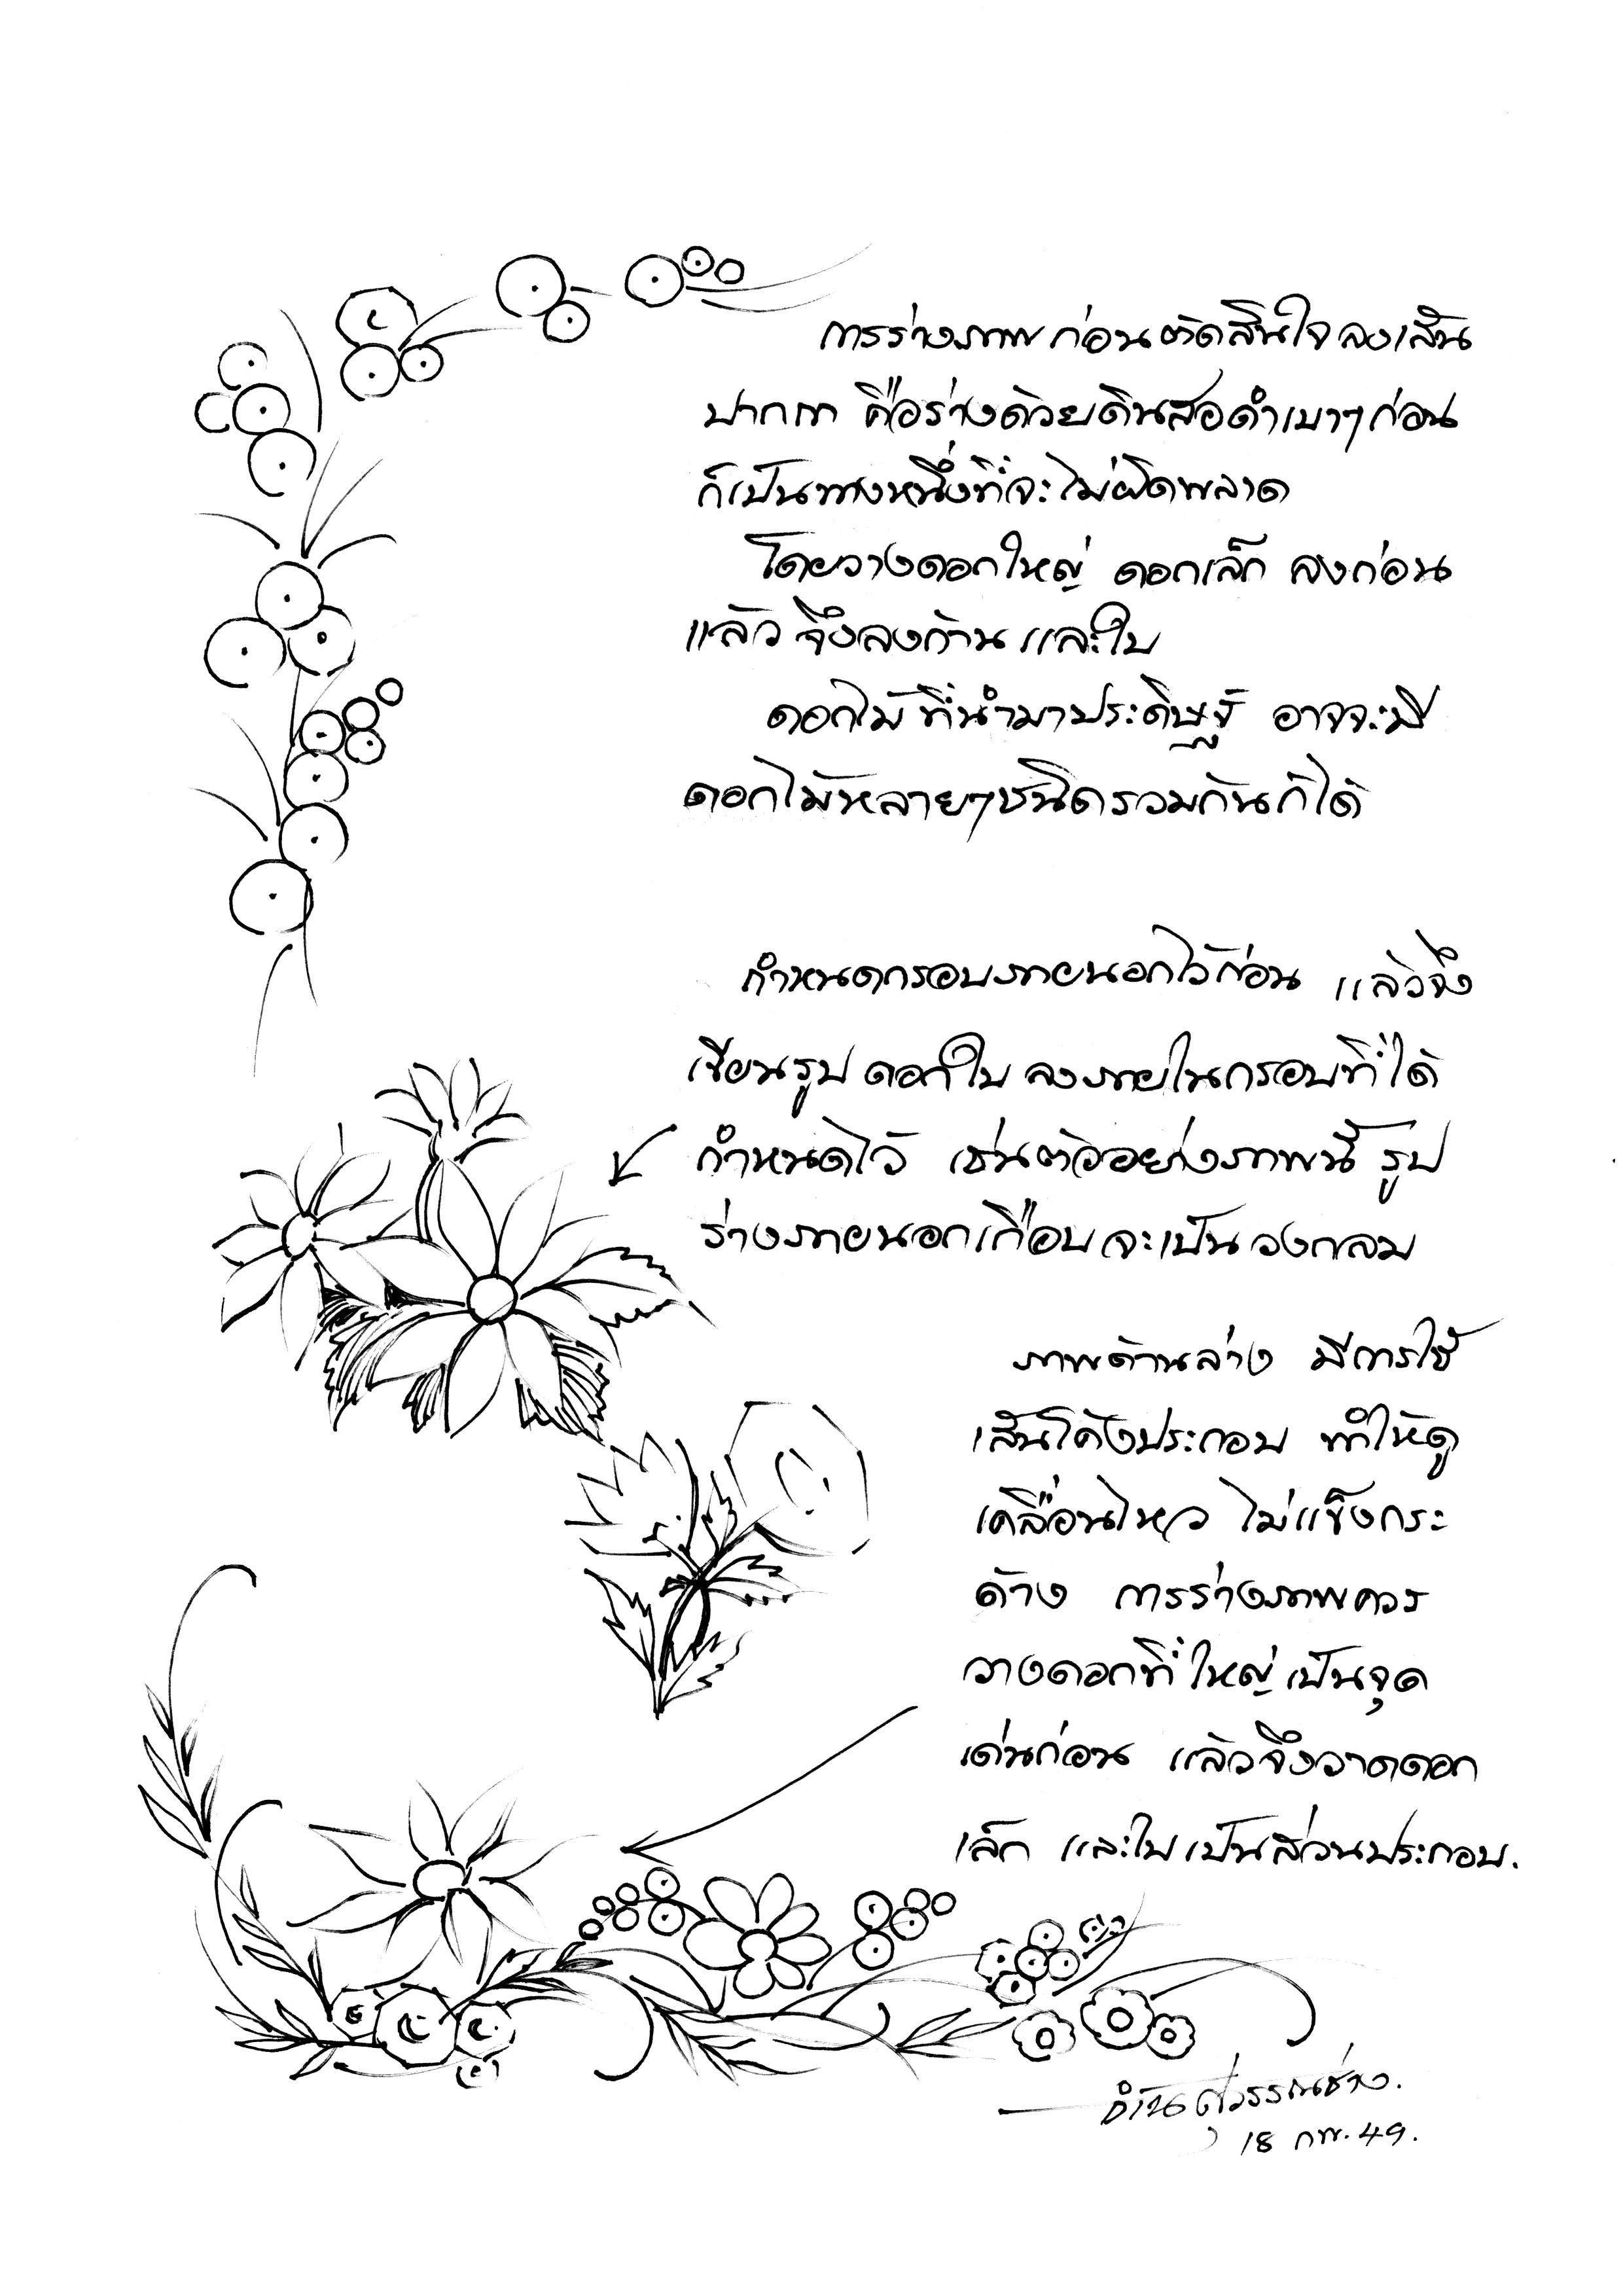 การร่างภาพ ก่อนตัดสินใจ ลงเส้น
ปากกา คือร่างด้วยดินสอดำเบาๆ ก่อน
ก็เป็นทางหนึ่งที่จะไม่ผิดพลาด
โดยวางดอกใหญ่ ดอกเล็ก ลงก่อน
แล้ว จึงลงก้าน และใบ
ดอกไม้ ที่นำมาประดิษฐ์ อาจจะมี
ดอกไม้หลายๆ ชนิดรวมกันก็ได้
กำหนดกรอบภายนอกไว้ก่อน แล้วจึง
เขียนรูป ดอก ใบ ลงภายในกรอบที่ได้
กำหนดไว้ เช่นตัวอย่างภาพนี้ รูป
ร่างภายนอกเกือบจะเป็น วงกลม
ภาพด้านล่าง มีการใช้
เส้นโค้งประกอบ ทำให้ดู
เคลื่อนไหว ไม่แข็งกระ
ด้าง การร่างภาพควร
วางดอกที่ใหญ่ เป็นจุด
เด่นก่อน แล้วจึงวาดดอก
เล็ก และใบ เป็นส่วนประกอบ.
สุวรรณช่าง.
18 กพ. 49.